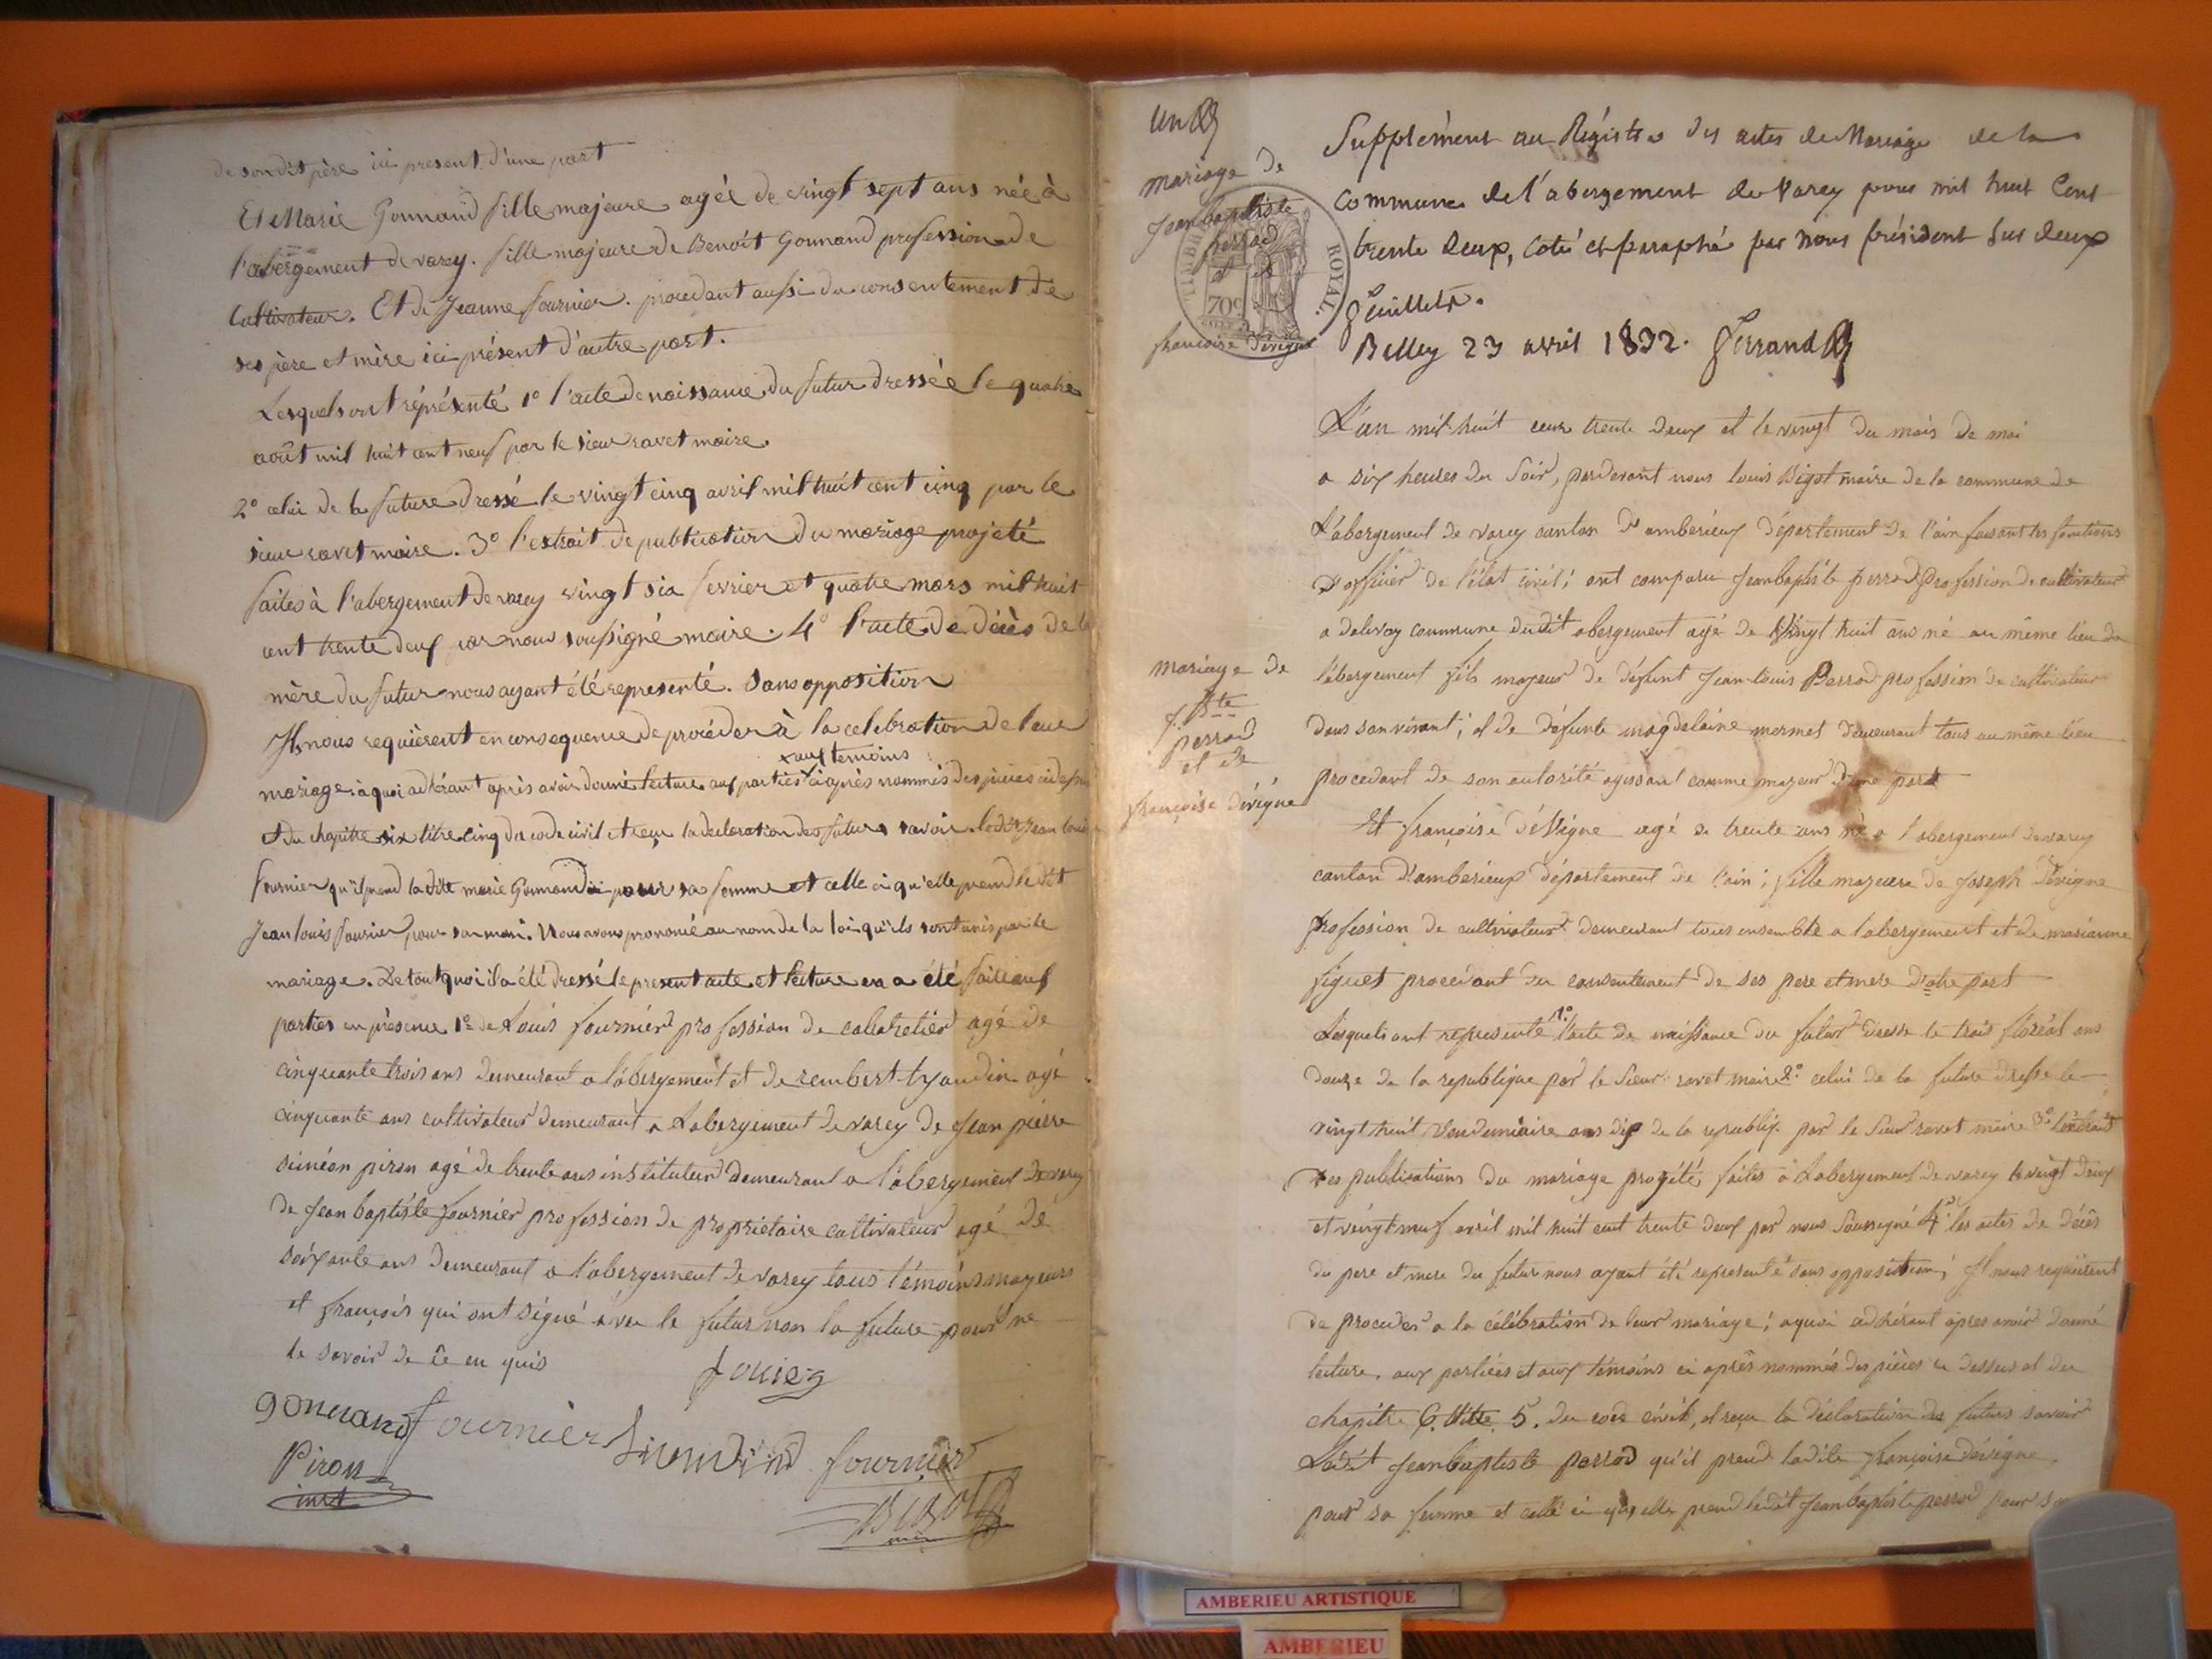 de son dit père ici present d'une part
Et Marie Gonnand fille majeure agée de vingt sept ans née à
l'abergement de varey. fille majeure de Benoît Gonnand profession de
Cultivateur. Et de Jeanne fournier. procedant aussi du consentement de
ses père et mère ici présent d'autre part.
Lesquels ont réprésenté 1º l'acte de naissance du futur dressée le quatre
août mil huit cent neuf par le sieur ravet maire.
2º celui de la future dressé le vingt cinq avril mil huit cent cinq par le
sieur ravet maire. 3º l'extrait de publication du mariage projeté
faites à l'abergement de varey vingt six fevrier et quatre mars mil huit
cent trente deux par nous soussigné maire. 4º l'acte de décès de la
mère du futur nous ayant été representé. Sans opposition
Ils nous requièrent en consequence de procéder à la celebration de leur
x aux temoins
mariage: à quoi adhérant après avoir donné lecture aux parties x ci après nommés des pièces ci dessus
et du chapitre six titre cinq du code civil et reçu la declaration des futurs savoir. ledit Jean louis
fournier qu'il prend la dite marie Gonnand ici pour sa femme et celle ci qu'elle prend le dit
Jean louis fournier, pour son mari. Nous avons prononcé au nom de la loi qu'ils sont unis par le
mariage. De tout quoi il a été dressé le present acte et lecture en a été faite aux
parties en présence 1º de Louis fournier profession de cabaretier agé de
cinquante trois ans demeurant a l'abergement et de rembert tyaudin agé
cinquante ans cultivateur demeurant a Labergement de varey de Jean pierre
siméon piron agé de trente ans instituteur demeurant a l'abergement de varey
de Jean baptiste fournier profession de propriétaire cultivateur agé de
soixante ans demeurant a l'abergement de varey tous témoins mayeurs
et françois qui ont signé avec le futur non la future pour ne
le savoir de ce en quis
gonnand fournier fournier
Piron
inst
BIGOT
un
mariage de
Jean baptiste
perrod
et de
françoise dévigne
TIMBRE ROYAL
70c
Supplément au Régistre des actes de Mariage de la
Commune de l'abergement de Varey pour mil huit Cent
trente deux, coté et paraphé par nous président sur deux
feuillets.
Belley 23 avril 1832. Ferrand
L'an mil huit cent trente deux et le vingt du mois de mai
a six heures du Soir, pardevant nous louis Bigot maire de la commune de
L'abergement de varey canton d'amberieux département de l'ain faisant les fonctions
d'officier de l'état civil; ont comparu Jean baptiste perrod profession de cultivateur
a dalivoy commune du dit abergement agé de Vingt huit ans né au même lieu de
l'abergement fils mayeur de défunt Jean-louis Perrod profession de cultivateur
dans son vivant; et de défunte magdelaine mermet demeurant tous au même lieu
procedant de son autorité agissant comme mayeur d'une part
mariage de
J. Bte
perrod
et de
françoise dévigne
Et françoise déVigne agé de trente ans né a l'abergement de varey
canton d'amberieux département de l'ain; fille mayeure de Joseph Dévigne
profession de cultivateur demeurant tous ensemble a l'abergement et de marianne
figuet procedant du consentement de ses pere et mere d'otre part
Lesquels ont representé 1º. l'acte de naissance du futur dresse le trois floréal ans
douze de la republique par le Sieur ravet maire 2º. celui de la future dresse le
vingt huit Vendemiaire ans dix de la republiq. par le Sieur ravet maire 3º. l'extrait
des publications du mariage projété faites a Labergement de varey le vingt deux
et vingt neuf avril mil huit cent trente deux par nous Soussigné 4º. les actes de décès
du pere et mere du futur nous ayant été representé sans opposition; Il nous requièrent
de proceder a la célébration de leur mariage; aquoi adhérant apres avoir donné
lecture, aux parties et aux témoins ci après nommés des pièces ci dessus et du
chapitre 6. titre 5. du code civil, et reçu la déclaration des futurs savoir
Ledit Jean baptiste perrod qu'il prend ladite françoise dévigne
pour sa femme et celle ci qu'elle prend ledit Jean baptiste perrod pour
AMBERIEU ARTISTIQUE
AMBERIEU